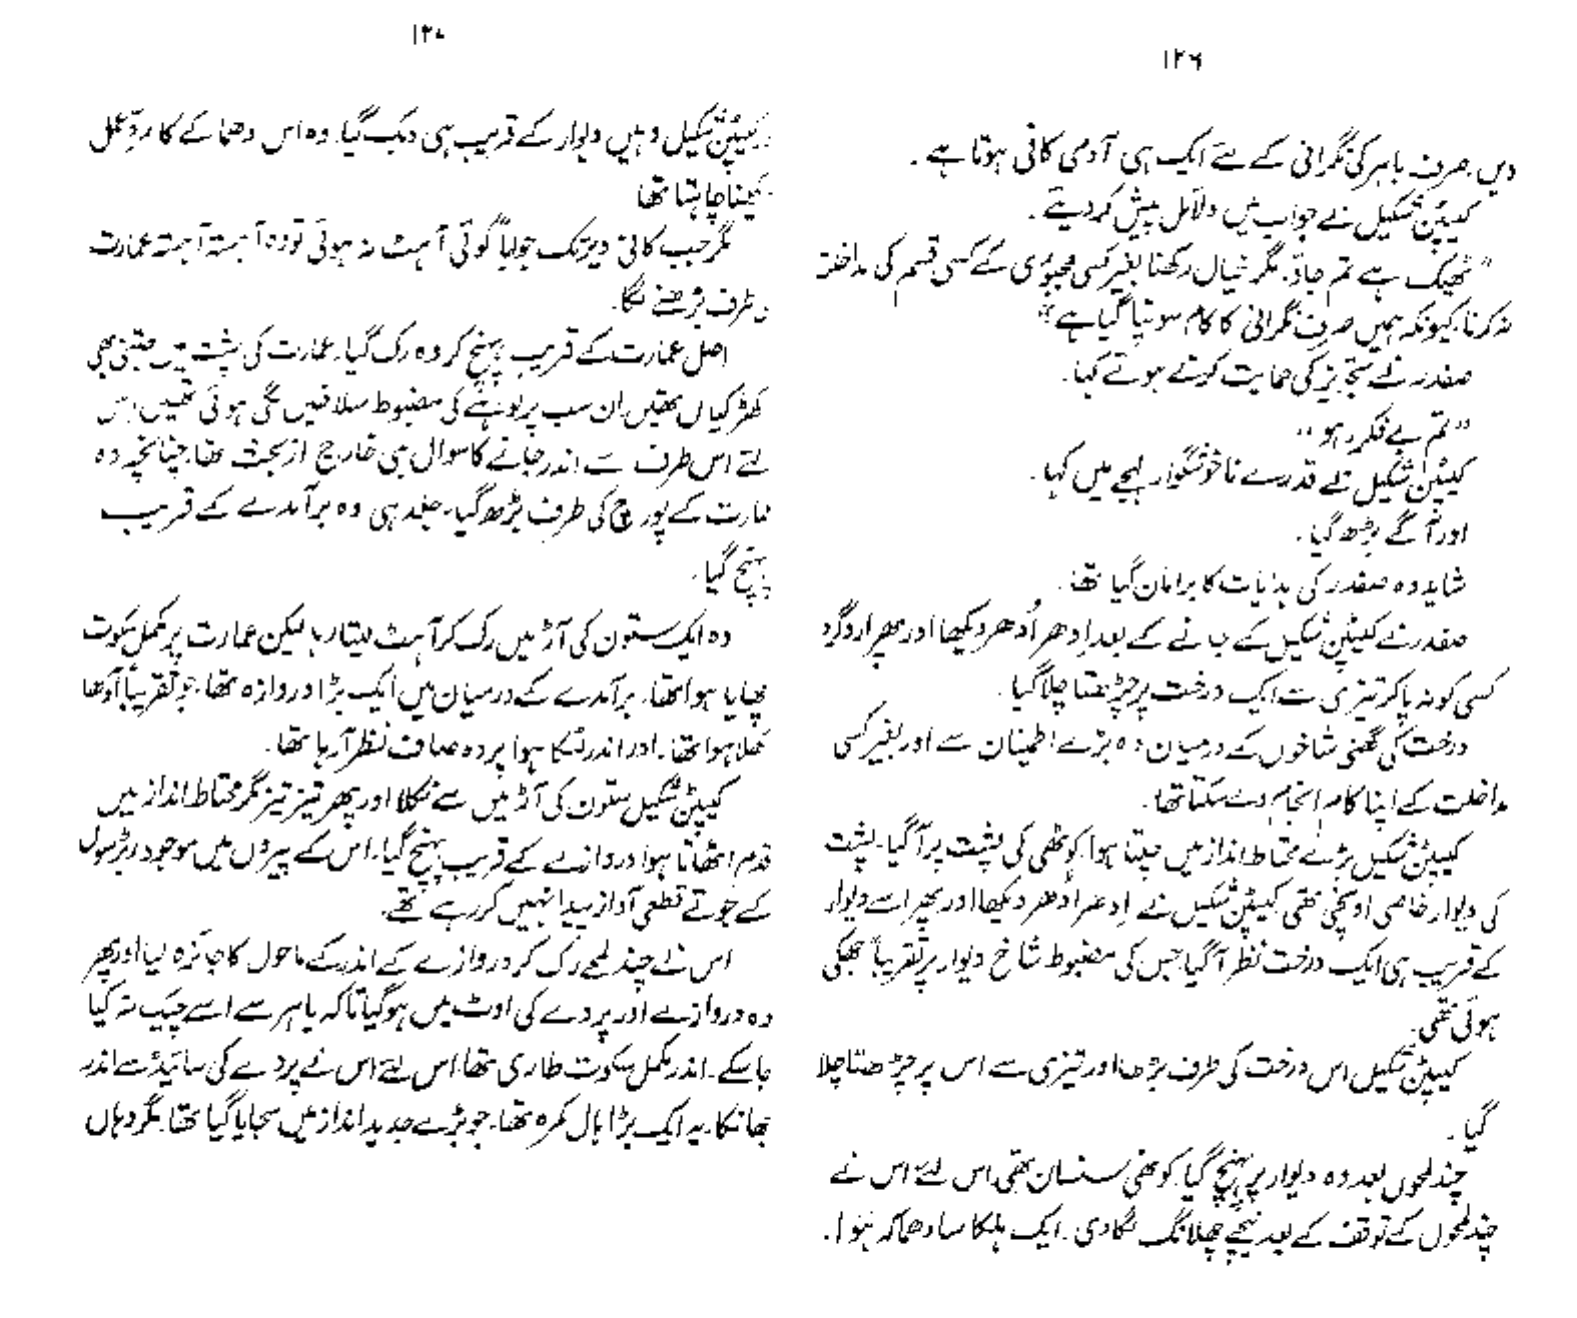 ۱۲۶
دیں۔ صرف باہر کی نگرانی کے لئے ایک ہی آدمی کافی ہوتا ہے۔
کیپٹن شکیل نے جواب میں دلائل پیش کر دیئے۔
"ٹھیک ہے تم جاؤ۔ مگر خیال رکھنا بغیر کسی مجبوری کے کسی قسم کی مداخلت
نہ کرنا، کیونکہ ہمیں صرف نگرانی کا کام سونپا گیا ہے"
صفدر نے تجویز کی حمایت کرتے ہوئے کہا۔
"تم بے فکر رہو"
کیپٹن شکیل نے قدرے ناخوشگوار لہجے میں کہا۔
اور آگے بڑھ گیا۔
شاید وہ صفدر کی ہدایات کا برا مان گیا تھا۔
صفدر نے کیپٹن شکیل کے جانے کے بعد اِدھر اُدھر دیکھا اور پھر اردگرد
کسی کو نہ پا کر تیزی سے ایک درخت پر چڑھتا چلا گیا۔
درخت کی گھنی شاخوں کے درمیان وہ بڑے اطمینان سے اور بغیر کسی
مداخلت کے اپنا کام انجام دے سکتا تھا۔
کیپٹن شکیل بڑے محتاط انداز میں چلتا ہوا کوٹھی کی پشت پر آگیا۔ پشت
کی دیوار خاصی اونچی تھی کیپٹن شکیل نے اِدھر اُدھر دیکھا اور پھر اسے دیوار
کے قریب ہی ایک درخت نظر آگیا جس کی مضبوط شاخ دیوار پر تقریباً جھکی
ہوئی تھی۔
کیپٹن شکیل اس درخت کی طرف بڑھا اور تیزی سے اس پر چڑھتا چلا
گیا۔
چند لمحوں بعد وہ دیوار پر پہنچ گیا کوٹھی سنسان تھی اس لئے اس نے
چند لمحوں کے توقف کے بعد نیچے چھلانگ لگا دی۔ ایک ہلکا سا دھماکہ ہوا۔
۱۲۷
کیپٹن شکیل وہیں دیوار کے قریب ہی دبک گیا۔ وہ اس دھماکے کا ردِّعمل
دیکھنا چاہتا تھا
مگر جب کافی دیر تک جواباً کوئی آہٹ نہ ہوئی تو وہ آہستہ آہستہ عمارت
کی طرف بڑھنے لگا۔
اصل عمارت کے قریب پہنچ کر وہ رک گیا۔ عمارت کی پشت میں جتنی بھی
کھڑکیاں تھیں ان سب پر لوہے کی مضبوط سلاخیں لگی ہوئی تھیں۔ اس
لئے اس طرف سے اندر جانے کا سوال ہی خارج از بحث تھا۔ چنانچہ وہ
عمارت کے پورچ کی طرف بڑھ گیا۔ جلد ہی وہ برآمدے کے قریب
پہنچ گیا۔
وہ ایک ستون کی آڑ میں رک کر آہٹ لیتا رہا لیکن عمارت پر مکمل سکوت
چھایا ہوا تھا۔ برآمدے کے درمیان میں ایک بڑا دروازہ تھا۔ جو تقریباً آدھا
کھلا ہوا تھا۔ اور اندر لٹکا ہوا پردہ صاف نظر آرہا تھا۔
کیپٹن شکیل ستون کی آڑ میں سے نکلا اور پھر تیز تیز مگر محتاط انداز میں
قدم اٹھاتا ہوا دروازے کے قریب پہنچ گیا۔ اس کے پیروں میں موجود ربڑ سول
کے جوتے قطعی آواز پیدا نہیں کر رہے تھے۔
اس نے چند لمحے رک کر دروازے کے اندر کے ماحول کا جائزہ لیا اور پھر
وہ دروازے اور پردے کی اوٹ میں ہوگیا تاکہ باہر سے اسے چیک نہ کیا
جا سکے۔ اندر مکمل سکوت طاری تھا۔ اس لئے اس نے پردے کی سائیڈ سے اندر
جھانکا۔ یہ ایک بڑا ہال کمرہ تھا۔ جو بڑے جدید انداز میں سجایا گیا تھا۔ مگر وہاں